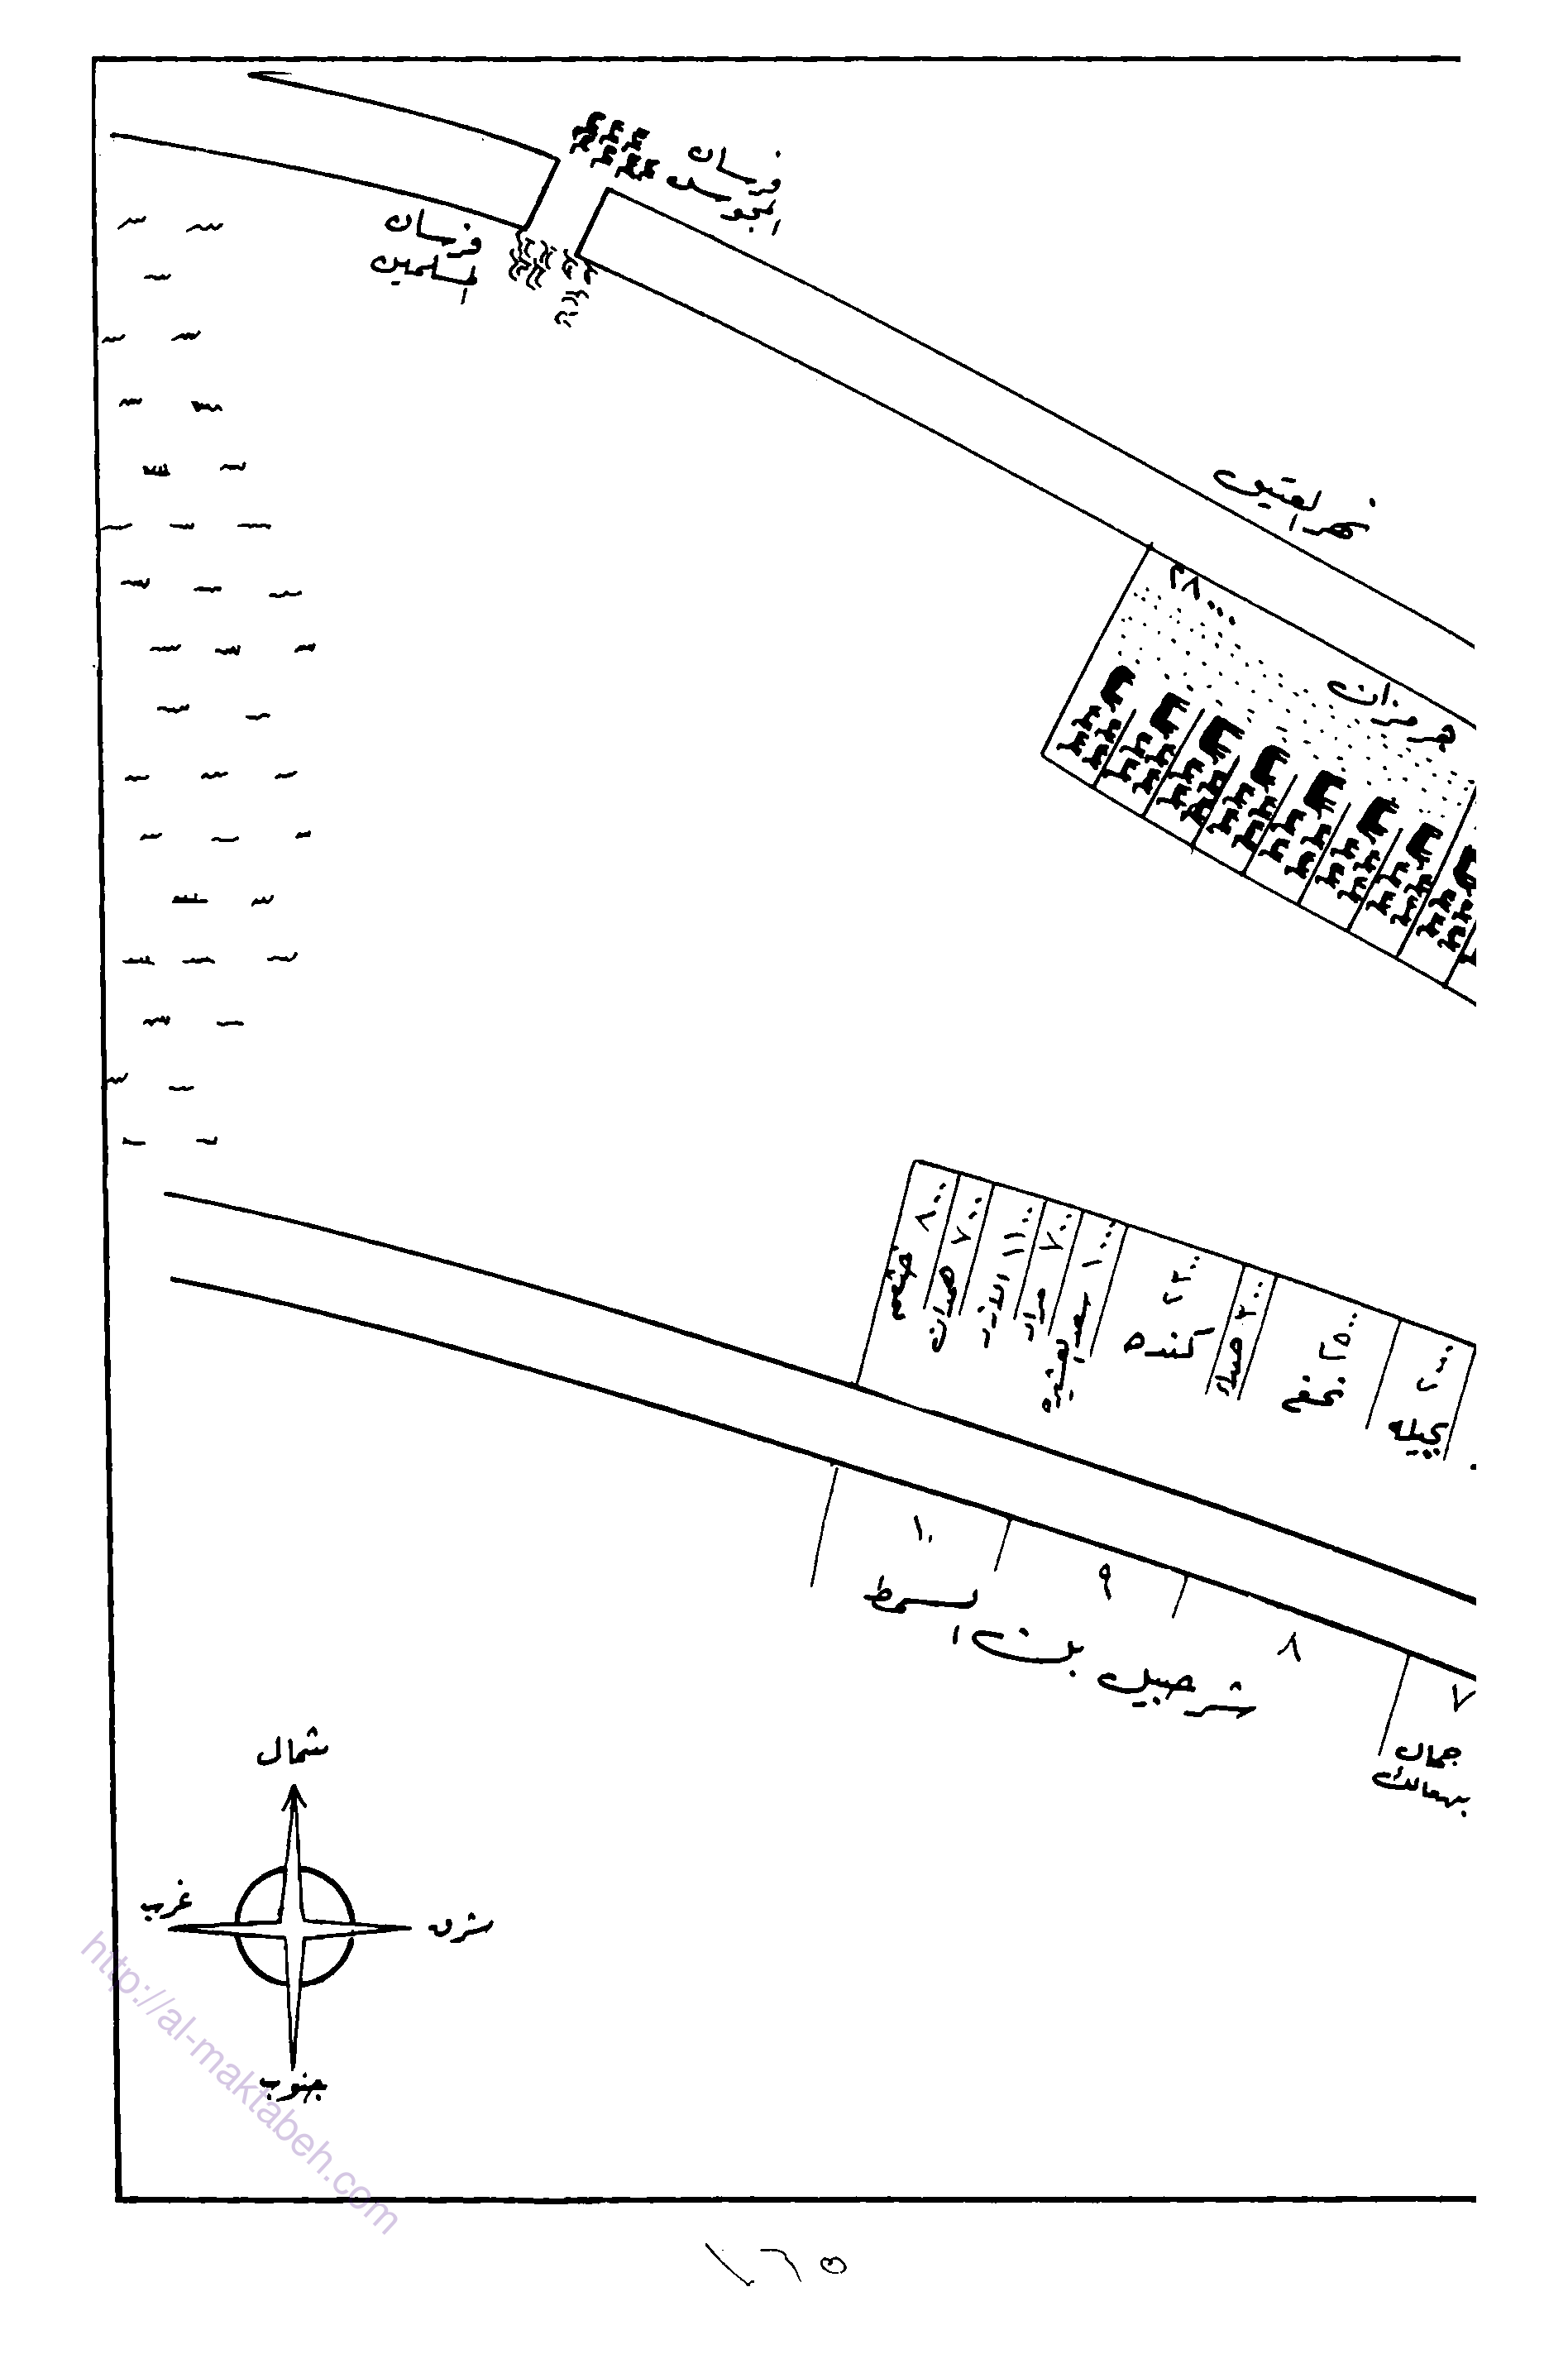 فرسان
المجوس
فرسان
المسلمين
نهر العتيق
٣٨٠٠٠
هرمزان
٨٠٠
خثعم
٧٠٠
همدان
١١٠٠
الأزد
٧٠٠
مراد
١٠٠٠
سعد العشيره
٢٣٠٠
كنده
٣٠٠
صداء
٢٥٠٠
نخع
٢٠٠٠
بجيله
١٠
٩
٨
٧
شرحبيل بن السمط
جمال
بهمالك
شمال
غرب
شرق
جنوب
http://al-maktabeh.com
١٦٥